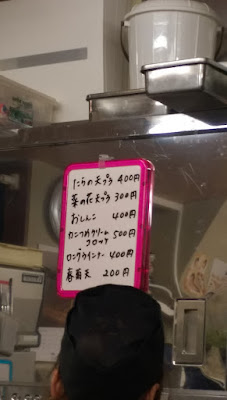 にらの天プラ 400円
菜の花天プラ 300円
おしんこ 400円
カニつめクリーム 500円
コロッケ
ロングウインナー 400円
春菊天 200円